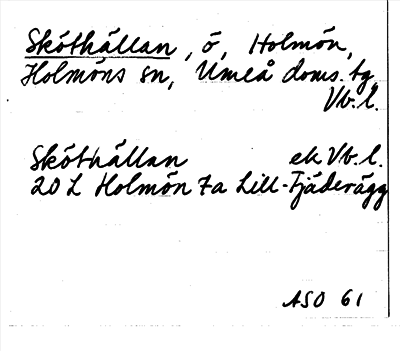 Sköthällan, ö, Holmön,
Holmöns sn, Umeå doms. tg
Vb. l.
Sköthällan ek Vb. l.
20 L Holmön 7a Lill-Fjäderägg
ASO 61